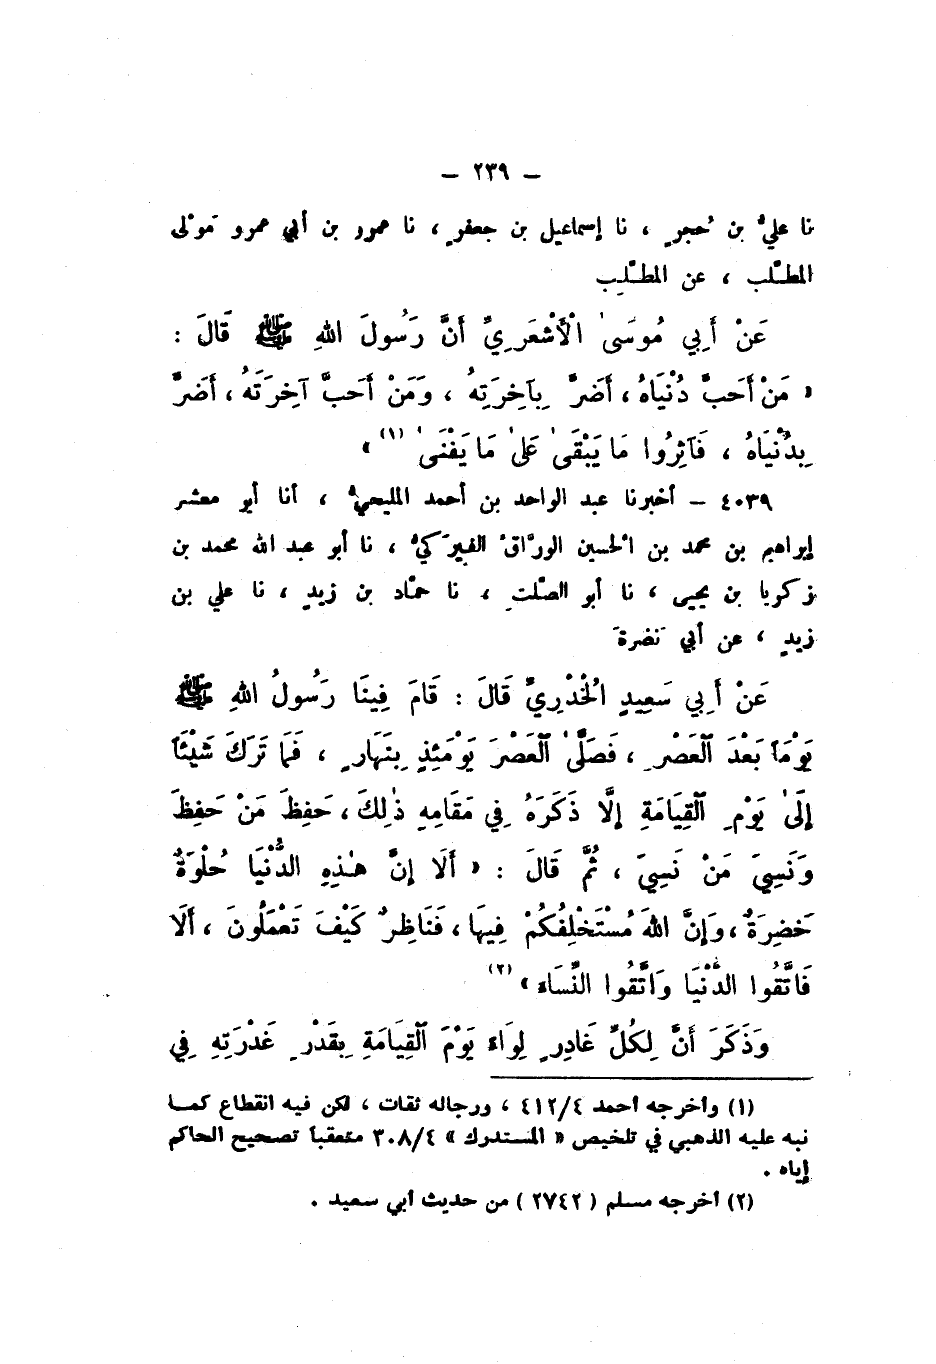 – ٢٣٩ –
نا عليُّ بن حُجرٍ ، نا إسماعيل بن جعفرٍ ، نا عمرو بن أبي عمرو مَوْلى
المطّلب ، عن المطّلِب
عَنْ أَبِي مُوسَىٰ الْأَشْعَرِيِّ أَنَّ رَسُولَ اللهِ ﷺ قَالَ :
« مَنْ أَحَبَّ دُنْيَاهُ ، أَضَرَّ بِآخِرَتِهُ ، وَمَنْ أَحَبَّ آخِرَتَهُ ، أَضَرَّ
بِدُنْيَاهُ ، فَآثِرُوا مَا يَبْقَىٰ عَلىٰ مَا يَفْنَىٰ (١) »
٤٠٣٩ – أخبرنا عبد الواحد بن أحمد المليحيُّ ، أنا أبو معشر
إبراهيم بن محمد بن الحسين الورَّاقُ الفيرَكيُّ ، نا أبو عبد الله محمد بن
زكريا بن يحيى ، نا أبو الصّلتِ ، نا حمّاد بن زيدٍ ، نا علي بن
زيدٍ ، عن أبي نَضرةَ
عَنْ أَبِي سَعِيدٍ الْخُدْرِيِّ قَالَ : قَامَ فِينَا رَسُولُ اللهِ ﷺ
يَوْمَاً بَعْدَ الْعَصْرِ ، فَصَلَّىٰ الْعَصْرَ يَوْمَئِذٍ بِنَهَارٍ ، فَمَا تَرَكَ شَيْئَاً
إِلَىٰ يَوْمِ الْقِيَامَةِ إِلَّا ذَكَرَهُ فِي مَقَامِهِ ذٰلِكَ ، حَفِظَ مَنْ حَفِظَ
وَنَسِيَ مَنْ نَسِيَ ، ثُمَّ قَالَ : « أَلَا إِنَّ هٰذِهِ الدُّنْيَا حُلْوَةٌ
خَضِرَةٌ ، وَإِنَّ اللهَ مُسْتَخْلِفُكُمْ فِيهَا ، فَنَاظِرٌ كَيْفَ تَعْمَلُونَ ، أَلَا
فَاتَّقُوا الدُّنْيَا وَاتَّقُوا النِّسَاءَ » (٢)
وَذَكَرَ أَنَّ لِكُلِّ غَادِرٍ لِوَاءً يَوْمَ الْقِيَامَةِ بِقَدْرِ غَدْرَتِهِ فِي
(١) وأخرجه أحمد ٤١٢/٤ ، ورجاله ثقات ، لكن فيه انقطاع كما
نبه عليه الذهبي في تلخيص « المستدرك » ٣٠٨/٤ متعقبا تصحيح الحاكم
إياه .
(٢) أخرجه مسلم ( ٢٧٤٢ ) من حديث أبي سعيد .